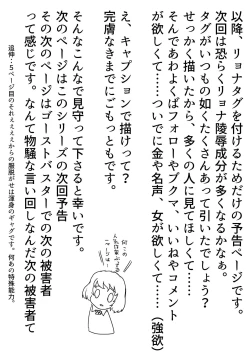 以降、リョナタグを付けるためだけの予告ページです。
次回は恐らくリョナ陵辱成分が多くなるかなぁ。
タグがいつもの如くたくさんあって引いたでしょう?
せっかく描いたから、多くの人に見てほしくて……
そんであわよくばフォローやブクマ、いいねやコメント
が欲しくて……ついでに金や名声、女が欲しくて……(強欲)
え、キャプションで描けって?
完膚なきまでにごもっともです。
そんなこんなで見守って下さると幸いです。
次のページはこのシリーズの次回予告
その次のページはゴーストバスターでの次の被害者
って感じです。なんて物騒な言い回しなんだ次の被害者て
追伸・5ページ目のそれえええからの服脱がせは渾身のギャグです。何あの特殊能力。